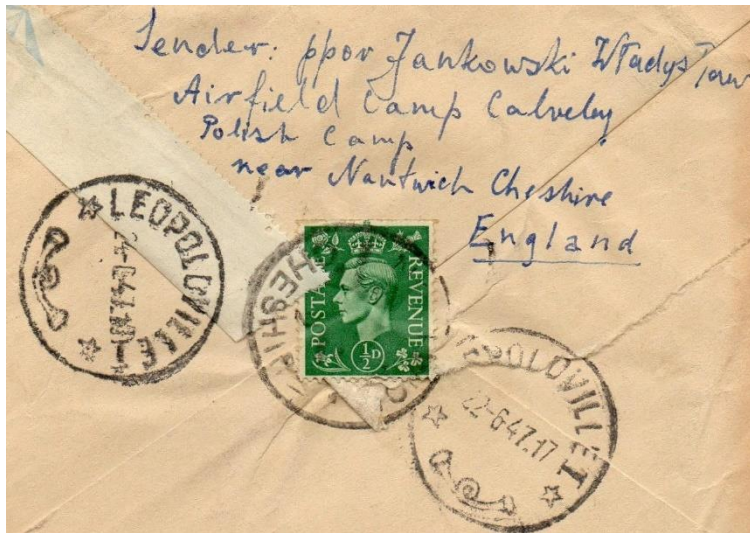 Sender: ppor Jankowski Władysław
Airfield Camp Calveley
Polish Camp
near Nantwich Cheshire
England
LEOPOLDVILLE 1
POSTAGE REVENUE
½D
CHESHIRE
LEOPOLDVILLE 1
22-6-47.17